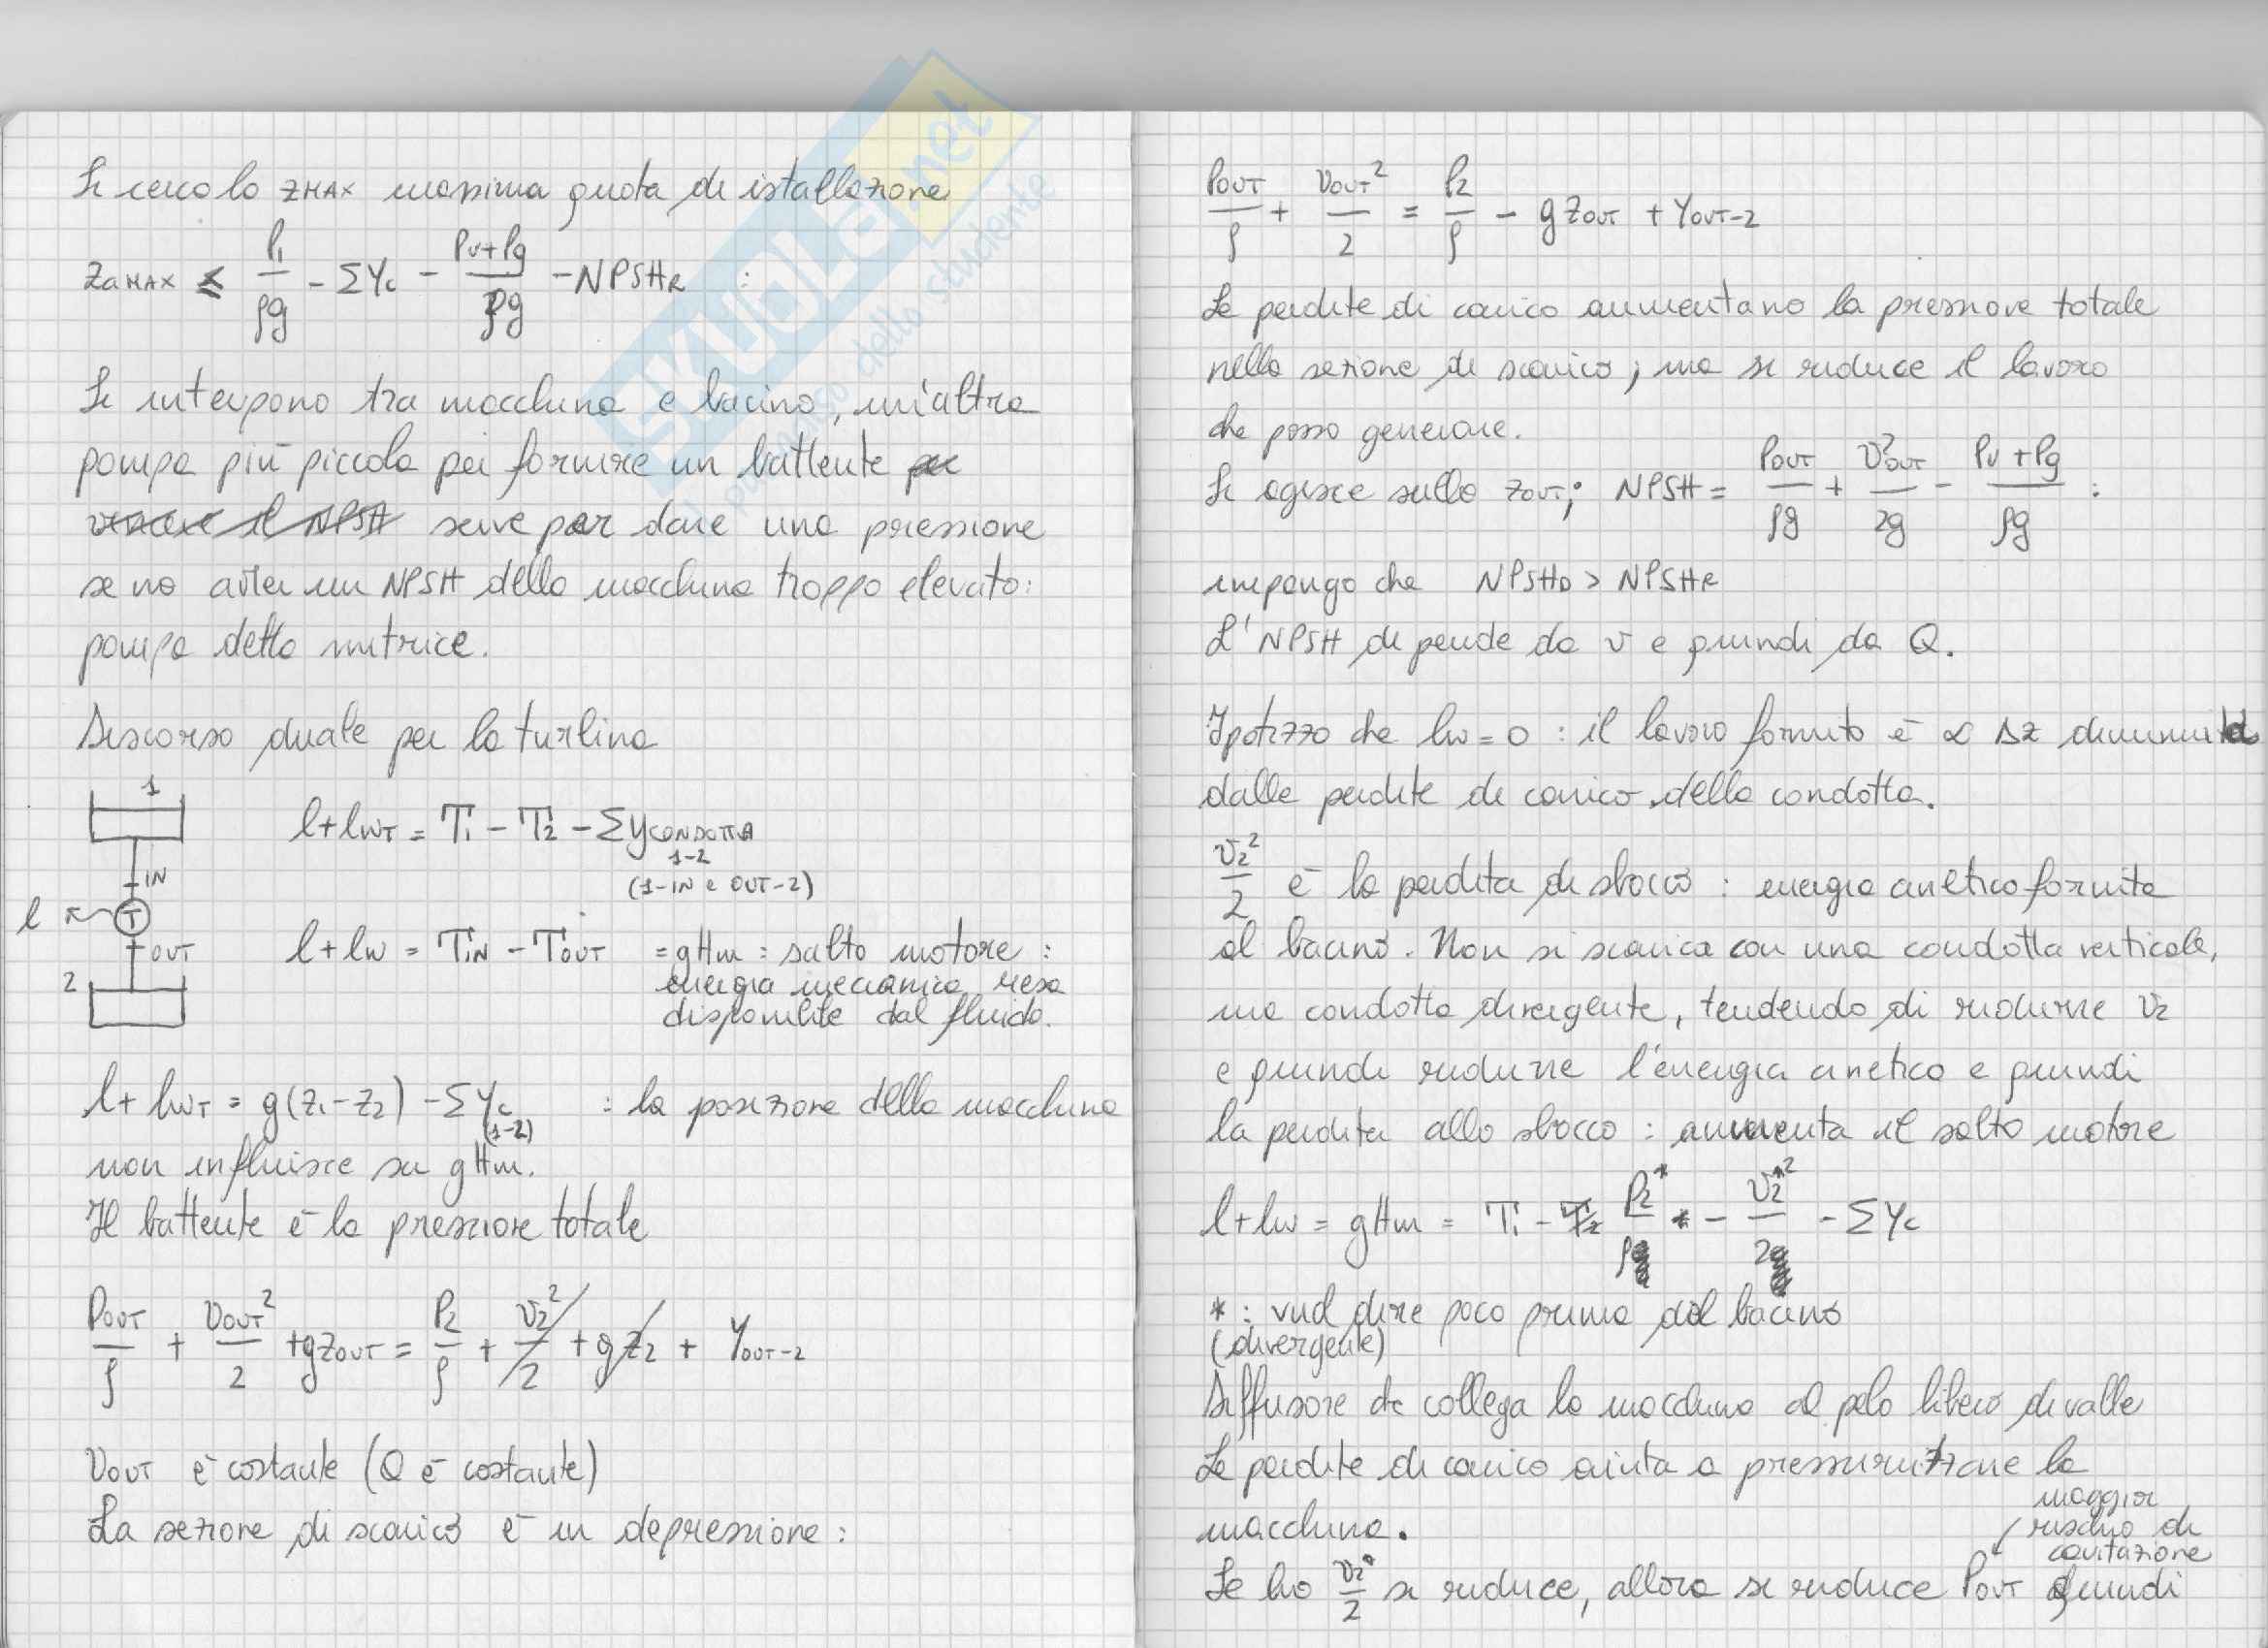 Si cerca la zMAX massima quota di istallazione
zaMAX ≤ P1/ρg - ΣYc - (Pv+Pg)/ρg - NPSHR :
Si interpone tra macchina e bacino, un'altra
pompa più piccola per fornire un battente per
vincere il NPSH serve per dare una pressione
se no avrei un NPSH della macchina troppo elevato:
pompa detta nutrice.
Discorso duale per la turbina
1
IN
l T
OUT
2
l+lwT = T1 - T2 - ΣyCONDOTTA
1-2
(1-IN e OUT-2)
l+lw = TIN - TOUT = gHm : salto motore :
energia meccanica resa
disponibile dal fluido.
l+lwT = g(z1-z2) - ΣYc (1-2) : la posizione della macchina
non influisce su gHm.
Il battente è la pressione totale
POUT/ρ + vOUT²/2 + gzOUT = P2/ρ + v2²/2 + gz2 + YOUT-2
vOUT è costante (Q è costante)
La sezione di scarico è in depressione :
POUT/ρ + vOUT²/2 = P2/ρ - gzOUT + YOUT-2
Le perdite di carico aumentano la pressione totale
nella sezione di scarico; ma si riduce il lavoro
che posso generare.
Si agisce sulla zOUT; NPSH = POUT/ρg + v²OUT/2g - (Pv+Pg)/ρg :
impongo che NPSHD > NPSHR
L'NPSH dipende da v e quindi da Q.
Ipotizzo che lw=0 : il lavoro fornito è ∝ Δz diminuito
dalle perdite di carico della condotta.
v2²/2 è la perdita di sbocco : energia cinetica fornita
al bacino. Non si scarica con una condotta verticale,
ma condotta divergente, tendendo di ridurre v2
e quindi ridurre l'energia cinetica e quindi
la perdita allo sbocco : aumenta il salto motore
l+lw = gHm = T1 - T2 P2*/ρ * - v2*²/2 - ΣYc
* : vuol dire poco prima del bacino
(divergente)
Diffusore che collega la macchina al pelo libero di valle
Le perdite di carico aiuta a pressurizzare la
macchina.
maggior
rischio di
cavitazione
Se ho v2*/2 si riduce, allora si riduce POUT quindi